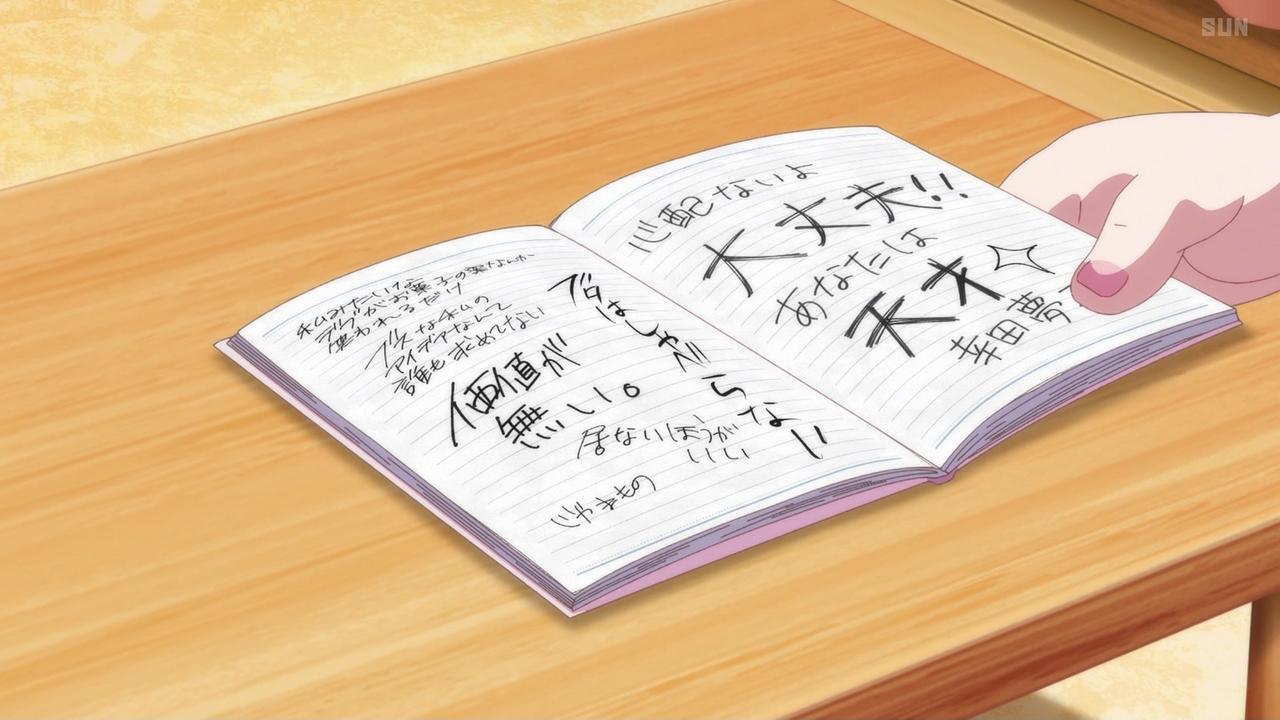 SUN
私みたいな
デブがお菓子の薬なんか
無われるだけ
ブスな私の
アイデアなんて
誰も求めてない
価値が
無い。
居ないほうが
いい
じゃまもの
ブタはしゃべらない
心配ないよ
大丈夫!!
あなたは
天才
幸田夢